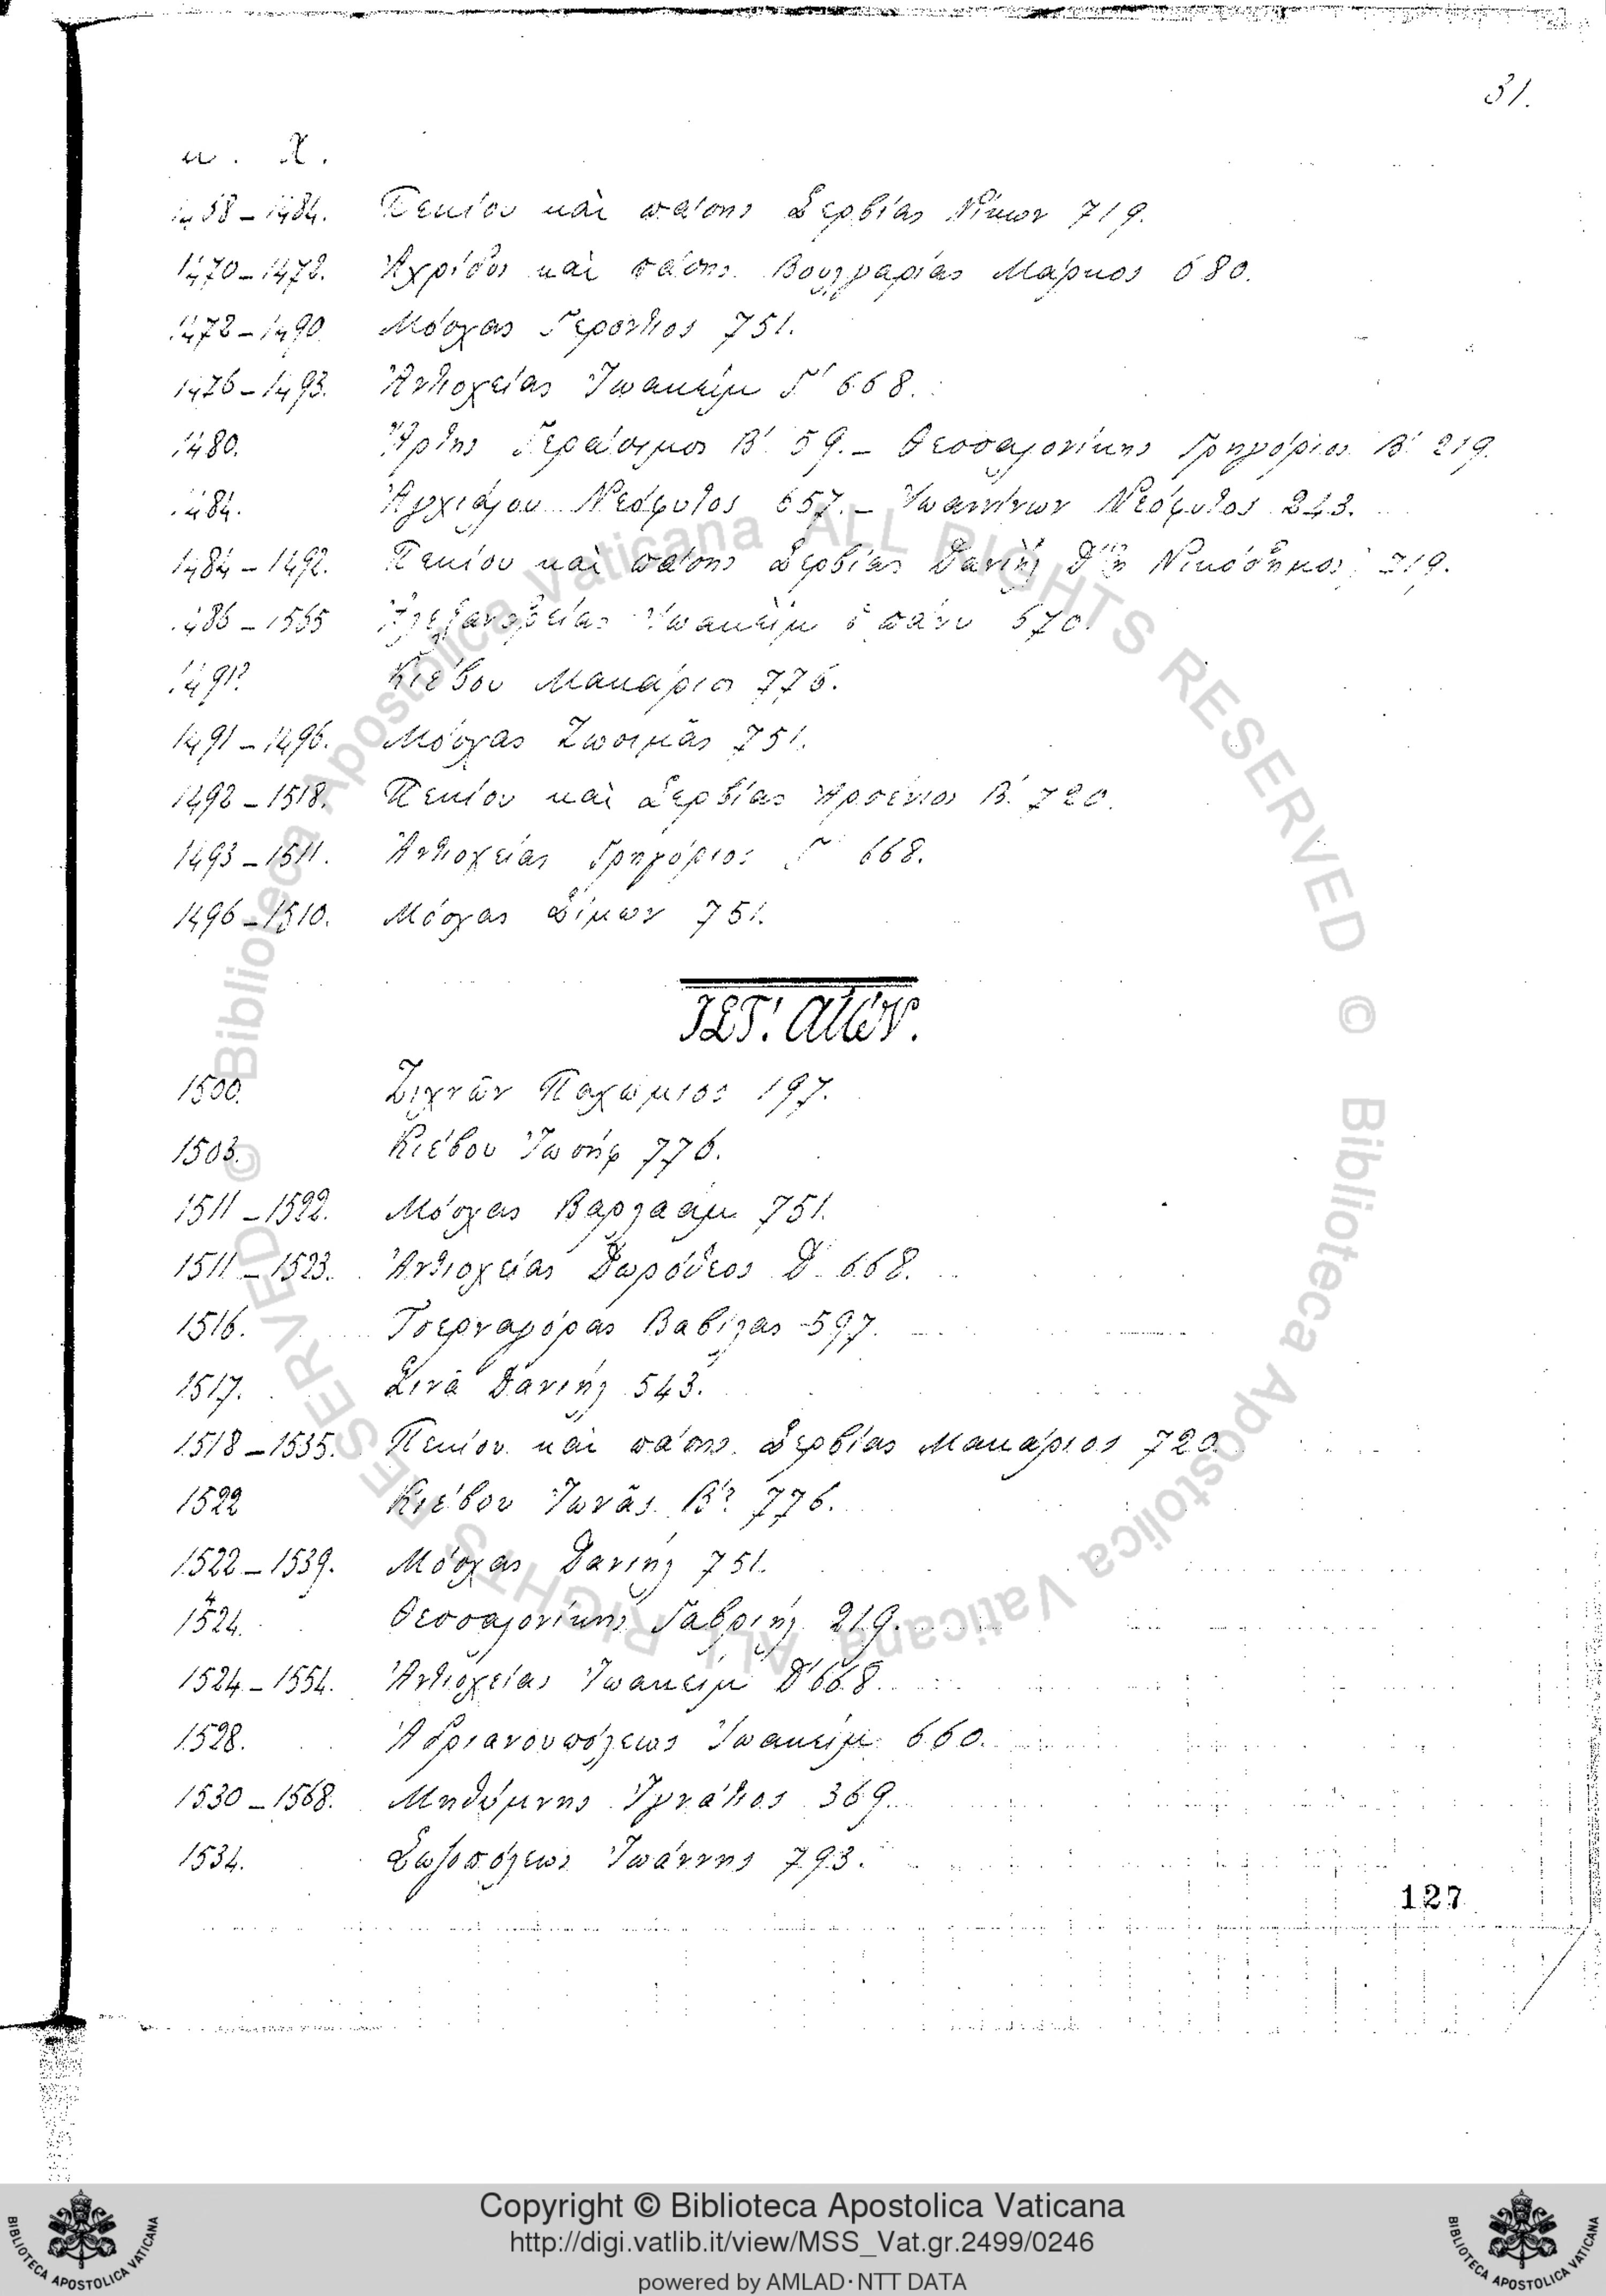 31.
μ. Χ.
1458–1484. Πεκίου καὶ πάσης Σερβίας Νίκων 719.
1470–1472. Ἀχρίδος καὶ πάσης Βουλγαρίας Μάρκος 680.
1472–1490 Μόσχας Γερόντιος 751.
1476–1493. Ἀντιοχείας Ἰωακεὶμ Γ' 668.
1480. Ἄρτης Γεράσιμος Β' 59.– Θεσσαλονίκης Γρηγόριος Β' 219.
1484. Ἀγχιάλου Νεόφυτος 657.– Ἰωαννίνων Νεόφυτος 243.
1484–1492. Πεκίου καὶ πάσης Σερβίας Δανιὴλ Νικόδημος 719.
1486–1565 Ἀλεξανδρείας Ἰωακεὶμ ὁ πάνυ 670.
1491? Κιέβου Μακάριος 776.
1491–1496. Μόσχας Ζωσιμᾶς 751.
1492–1518. Πεκίου καὶ Σερβίας Ἀρσένιος Β' 720.
1493–1511. Ἀντιοχείας Γρηγόριος Γ' 668.
1496–1510. Μόσχας Σίμων 751.
ΙΣΤ'. αἰών.
1500. Ζιχνῶν Παχώμιος 197.
1503. Κιέβου Ἰωσὴφ 776.
1511–1522. Μόσχας Βαρλαὰμ 751.
1511–1523. Ἀντιοχείας Δωρόθεος Δ' 668.
1516. Τσερναγόρας Βαβίλας 597.
1517. Σινᾶ Δανιὴλ 543.
1518–1535. Πεκίου καὶ πάσης Σερβίας Μακάριος 720
1522 Κιέβου Ἰωνᾶς Β'? 776.
1522–1539. Μόσχας Δανιὴλ 751.
1524. Θεσσαλονίκης Γαβριὴλ 219.
1524–1554. Ἀντιοχείας Ἰωακεὶμ Δ' 668.
1528. Ἀδριανουπόλεως Ἰωακεὶμ 660.
1530–1568. Μηθύμνης Ἰγνάτιος 369.
1534. Σωζοπόλεως Ἰωάννης 793.
127
© Biblioteca Apostolica Vaticana ALL RIGHTS RESERVED © Biblioteca Apostolica Vaticana ALL RIGHTS RESERVED
Copyright © Biblioteca Apostolica Vaticana
http://digi.vatlib.it/view/MSS_Vat.gr.2499/0246
powered by AMLAD·NTT DATA
BIBLIOTECA APOSTOLICA VATICANA
BIBLIOTECA APOSTOLICA VATICANA